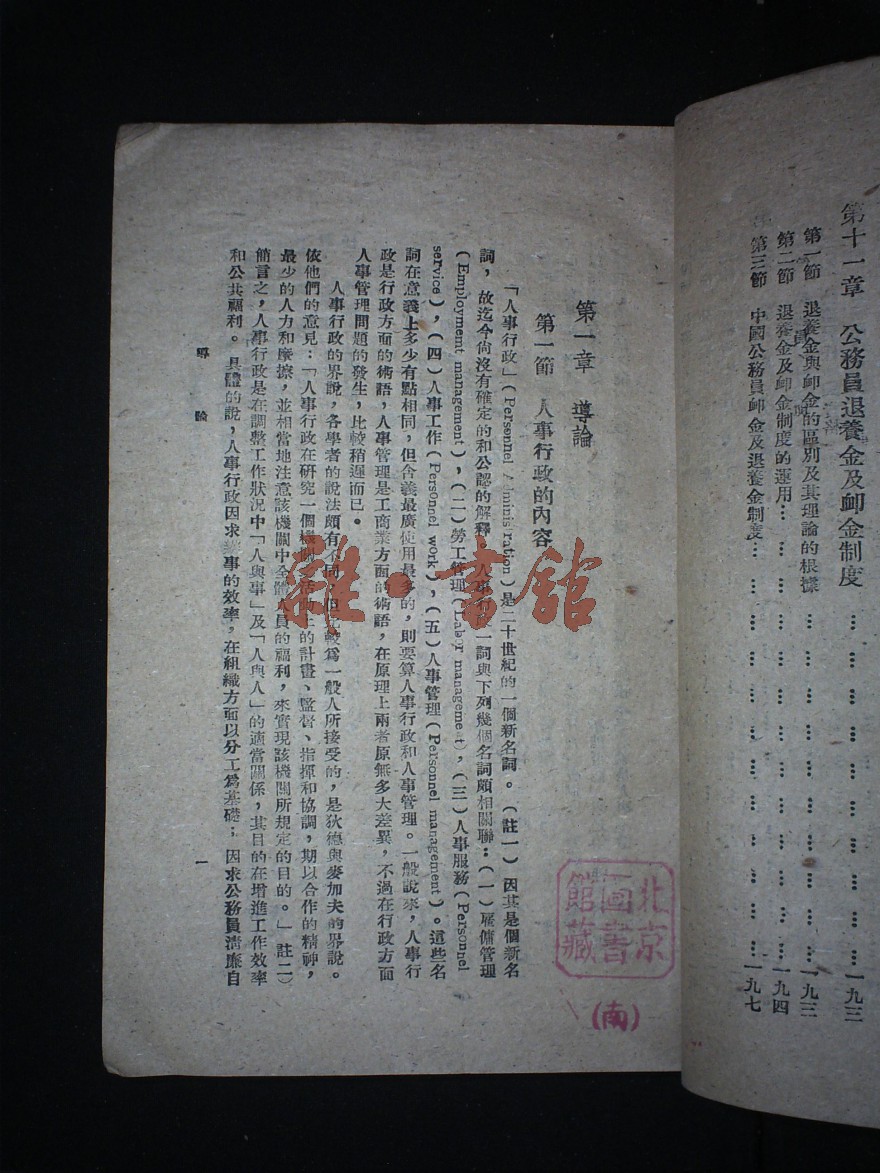 第十一章 公務員退養金及卹金制度 … … … … … … … 一九三
第一節 退養金與卹金的區別及其理論的根據 … … … … … 一九三
第二節 退養金及卹金制度的運用… … … … … … … 一九四
第三節 中國公務員卹金及退養金制度… … … … … … 一九七
第一章 導論
第一節 人事行政的內容
「人事行政」(Personnel Adminis ration)是二十世紀的一個新名詞。(註一)因其是個新名
詞,故迄今尙沒有確定的和公認的解釋,人事行政一詞與下列幾個名詞頗相關聯:(一)雇傭管理
(Employment management),(二)勞工管理(Labor managemeɛt),(三)人事服務(Personnel
service),(四)人事工作(Personnel work),(五)人事管理(Personnel management)。這些名
詞在意義上多少有點相同,但含義最廣使用最多的,則要算人事行政和人事管理。一般說來,人事行
政是行政方面的術語,人事管理是工商業方面的術語,在原理上兩者原無多大差異,不過在行政方面
人事管理問題的發生,比較稍遲而已。
人事行政的界說,各學者的說法頗有不同,但比較爲一般人所接受的,是狄德與麥加夫的界說。
依他們的意見:「人事行政在研究一個機關活動上的計畫、監督、指揮和協調,期以合作的精神,
最少的人力和摩擦,並相當地注意該機關中全體人員的福利,來實現該機關所規定的目的。」(註二)
簡言之,人事行政是在調整工作狀況中「人與事」及「人與人」的適當關係,其目的在增進工作效率
和公共福利。具體的說,人事行政因求業事的效率,在組織方面以分工爲基礎;因求公務員淸廉自
導 論
一
北京
圖書
館藏
(南)
雜·書館